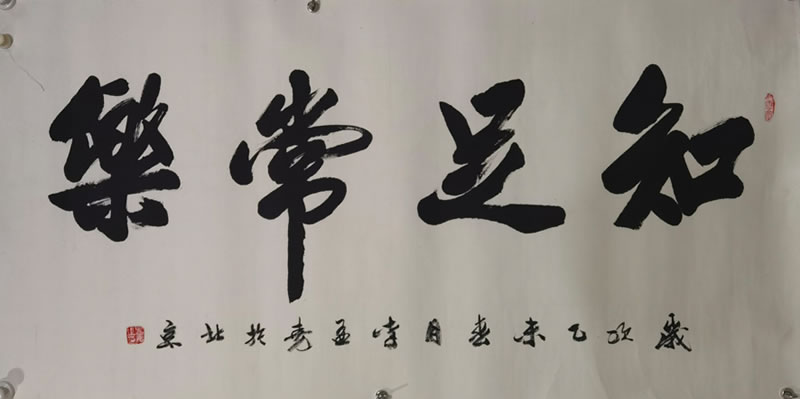 知足常樂
歲次乙未春月孟堯於北京